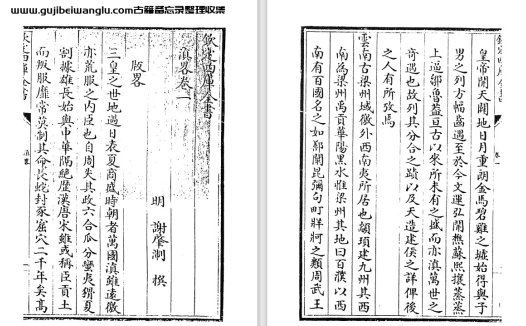 www.gujibeiwanglu.com古籍备忘录整理收集
欽定四庫全書
滇略卷一
明 謝肇淛 撰
版略
三皇之世地過日表夏商底時朝者萬國滇雖遠徼
亦荒服之内臣也自周失其政六合瓜分蠻夷猾夏
割據雄長始與中華隔絶歴漢唐宋雖或稱臣貢土
而叛服靡常莫制其命長蛇封豕窟穴二千年矣高
皇帝闢天開地日月重朗金馬碧雞之域始得與子
男之列方幅畺遇至於今文運弘開熊蘇熙攘蒸蒸
上遡鄒魯蓋亘古以來所未有之域而亦滇萬世之
奇遇也故列其分合之蹟以及天造建侯之詳俾後
之人有所攷焉
雲南古梁州域徼外西南夷所居也顓頊建九州其西
南為梁州禹貢華陽黑水惟梁州其地曰百濮以西
南有百國名之如鄯闡昆彌句町牂牁之類周武王